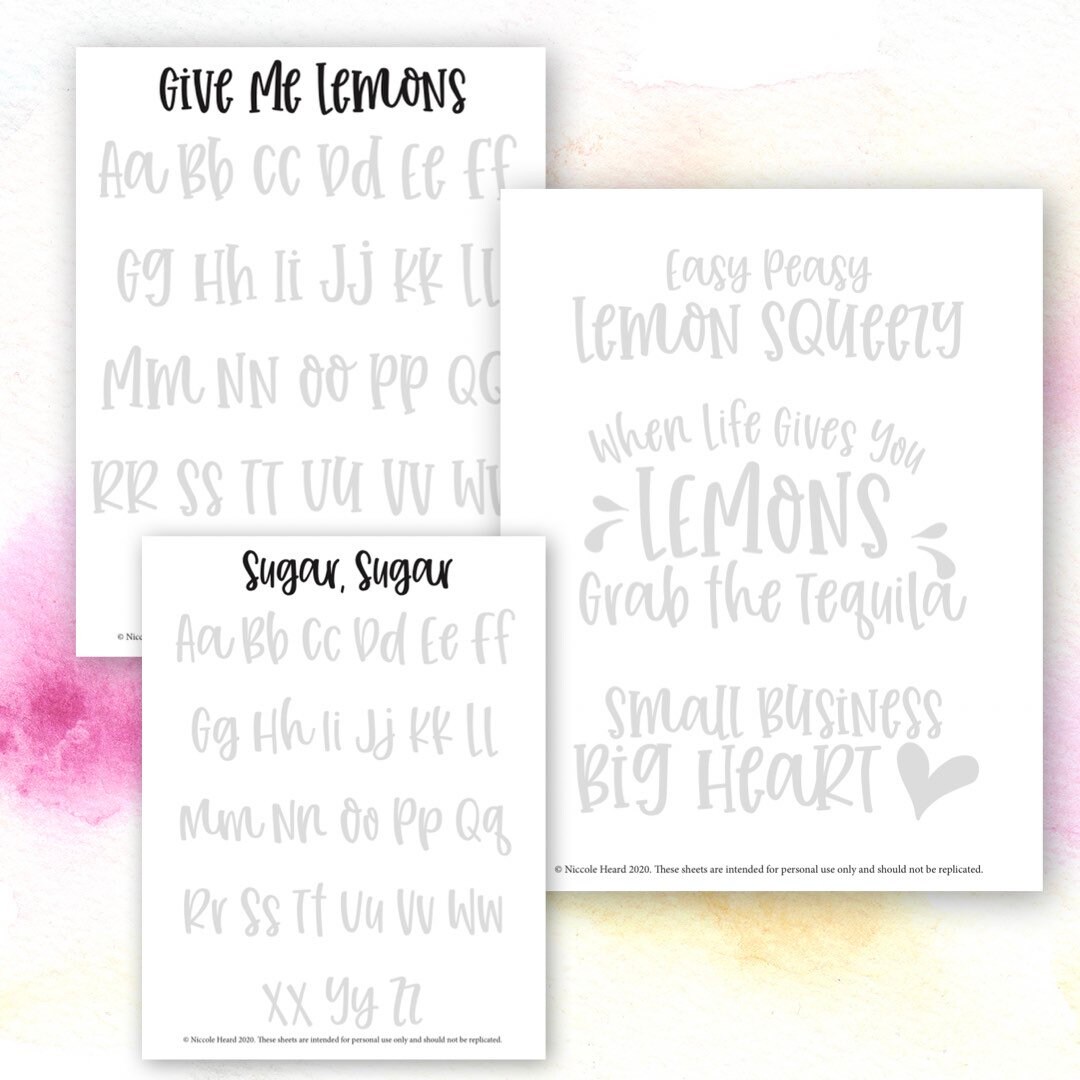 Give Me Lemons
Aa Bb Cc Dd Ee Ff
Gg Hh Ii Jj Kk Ll
Mm Nn Oo Pp Qq
Rr Ss Tt Uu Vv Ww
Sugar, Sugar
Aa Bb Cc Dd Ee Ff
Gg Hh Ii Jj Kk Ll
Mm Nn Oo Pp Qq
Rr Ss Tt Uu Vv Ww
Xx Yy Zz
© Niccole Heard 2020. These sheets are intended for personal use only and should not be replicated.
Easy Peasy
Lemon Squeezy
When Life Gives You
LEMONS
Grab the Tequila
Small Business
Big Heart
© Niccole Heard 2020. These sheets are intended for personal use only and should not be replicated.